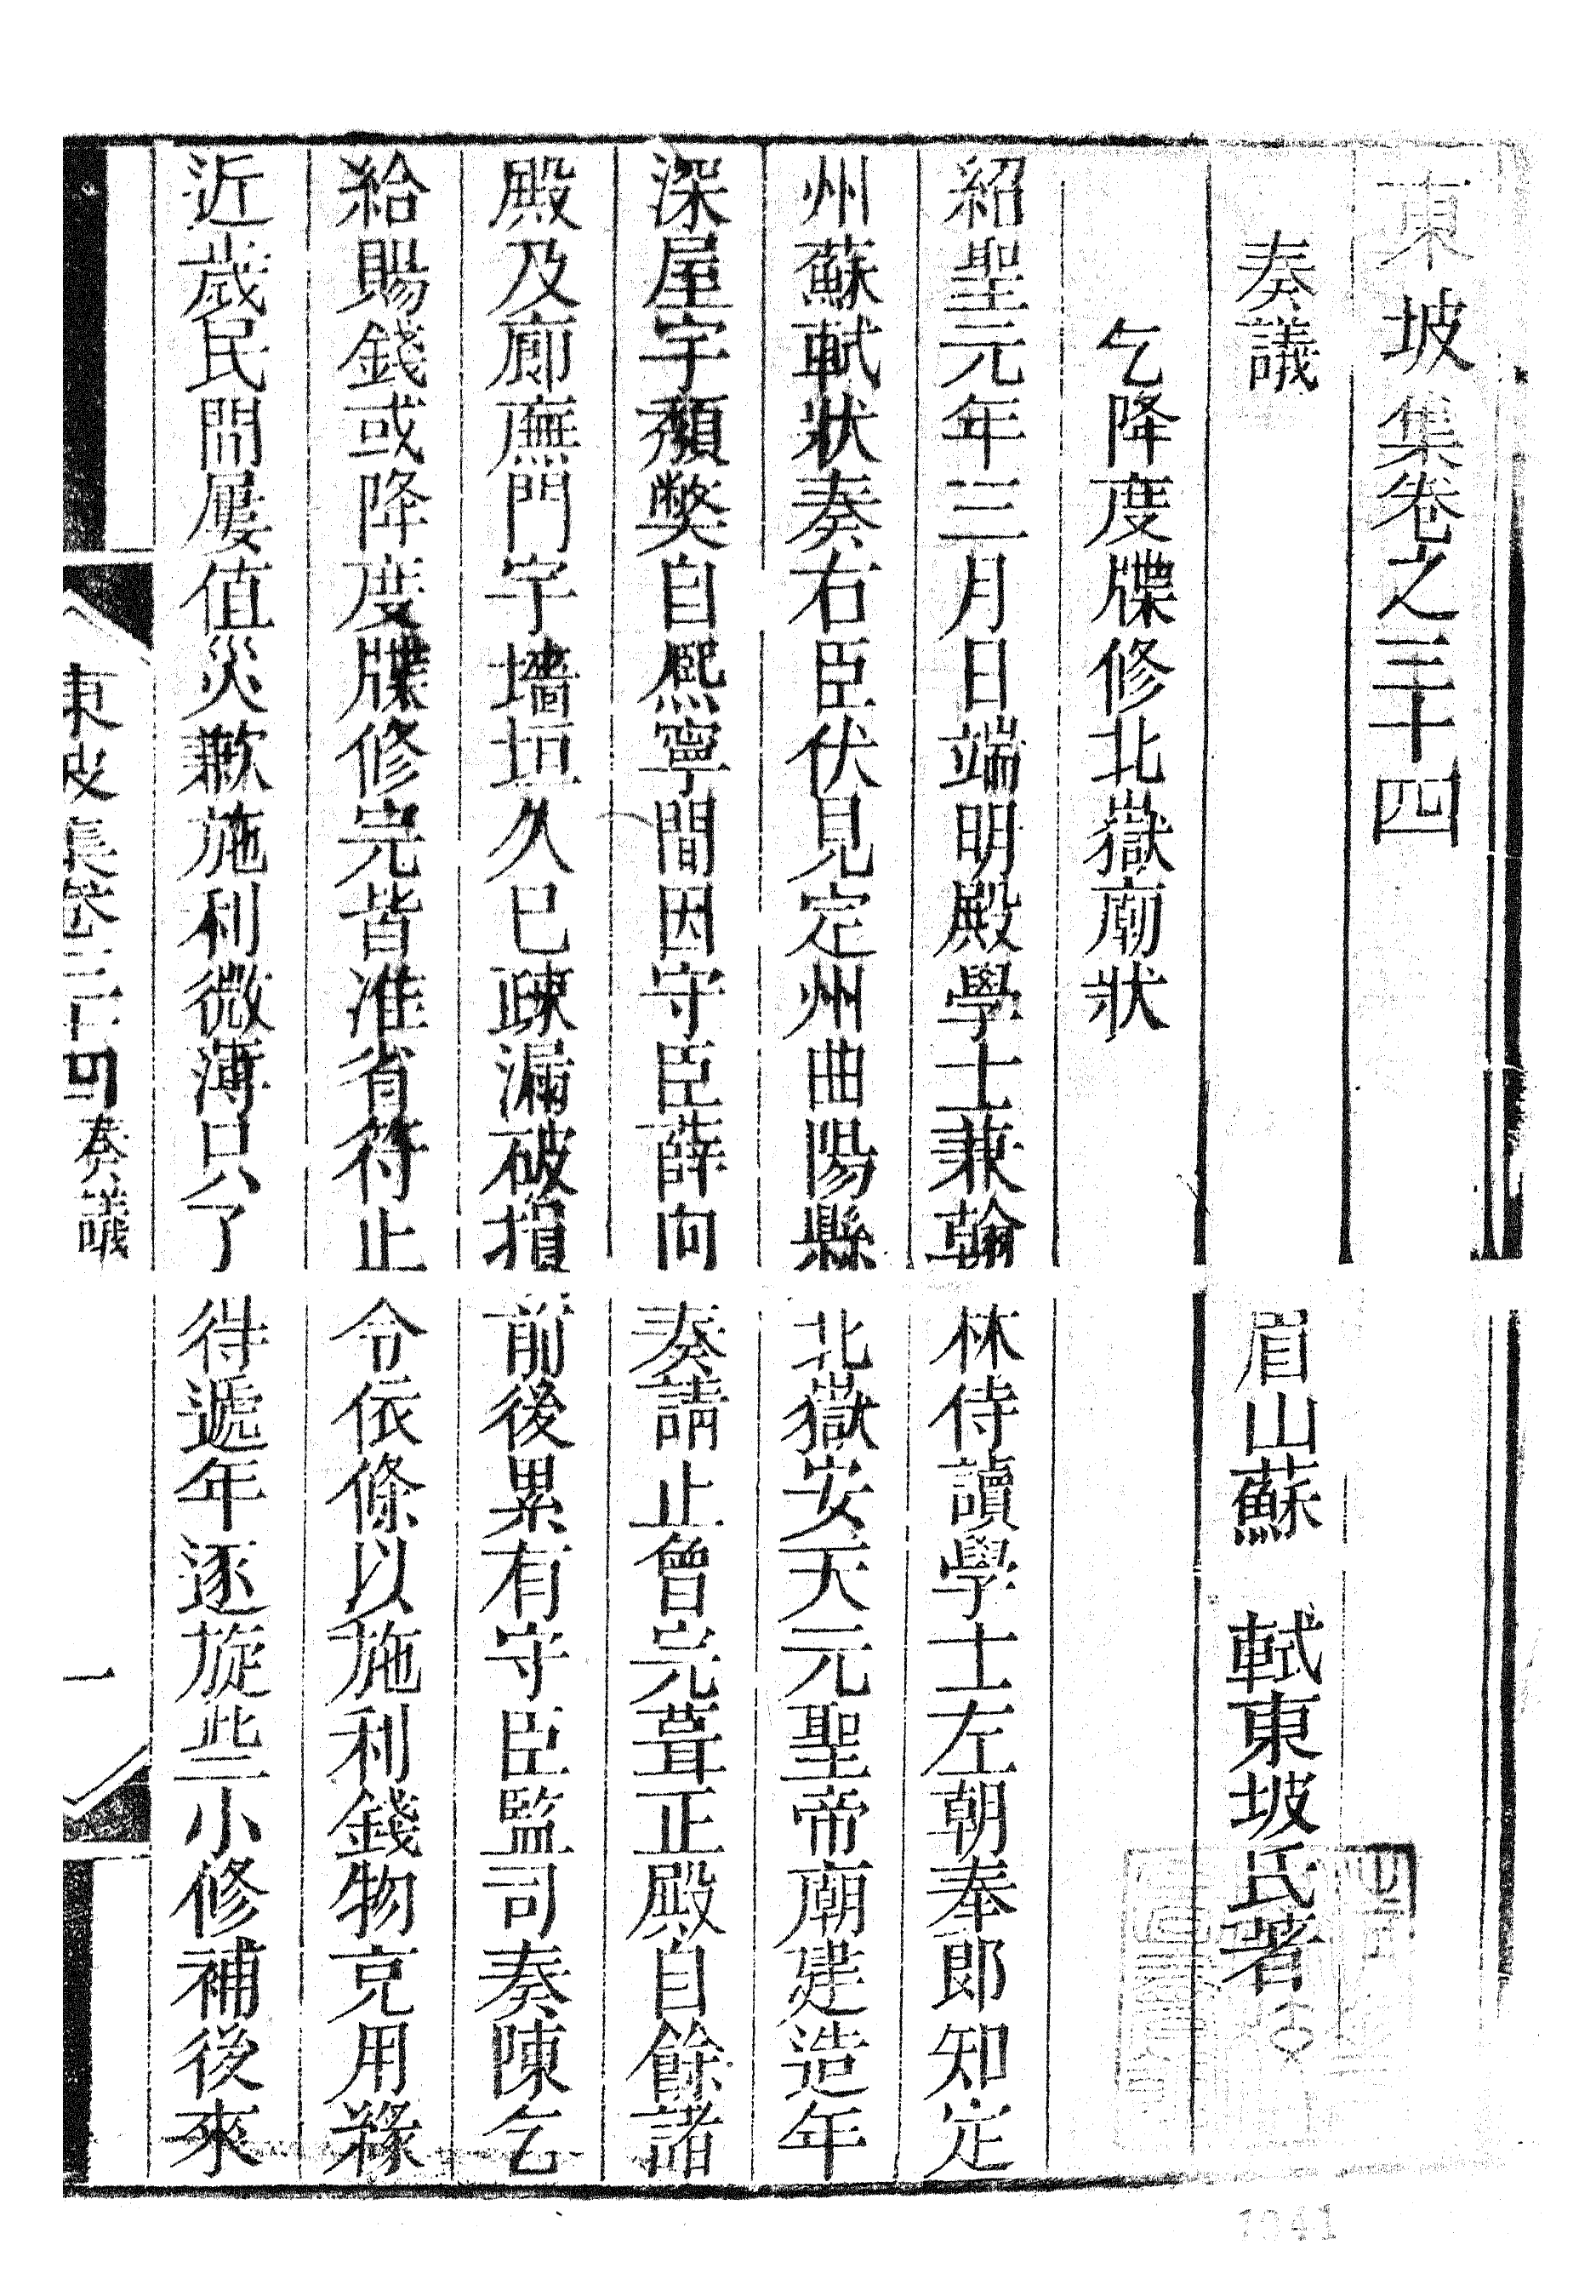 東坡集卷之三十四
奏議　眉山蘇　軾東坡氏著
乞降度牒修北嶽廟狀
紹聖元年三月日端明殿學士兼翰林侍讀學士左朝奉郎知定
州蘇軾狀奏右臣伏見定州曲陽縣北嶽安天元聖帝廟建造年
深屋宇頹獘自熈寧間因守臣薛向奏請止曾完葺正殿自餘諸
殿及廊廡門宇墻垣久已疎漏破損前後累有守臣監司奏陳乞
給賜錢或降度牒修完皆准省符止令依條以施利錢物充用緣
近歲民間屢值災歉施利微薄只了得遞年逐旋些小修補後來
東坡集卷三十四　奏議　一
1941